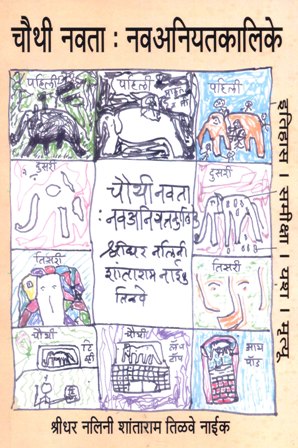 चौथी नवता : नवअनियतकालिके
पहिली
पहिली
पहिली
दुसरी
दुसरी
चौथी नवता
:नवअनियतकालिके
श्रीधर नलिनी
शांताराम नाईक
तिळवे
तिसरी
तिसरी
चौथी
टि
व्ही
चौथी
लॅप
टॉप
आय
पॉड
इतिहास । समीक्षा । मृत्यू
श्रीधर नलिनी शांताराम तिळवे नाईक